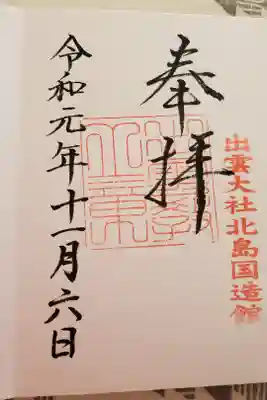 出雲大社北島国造館
奉拝
令和元年十一月六日